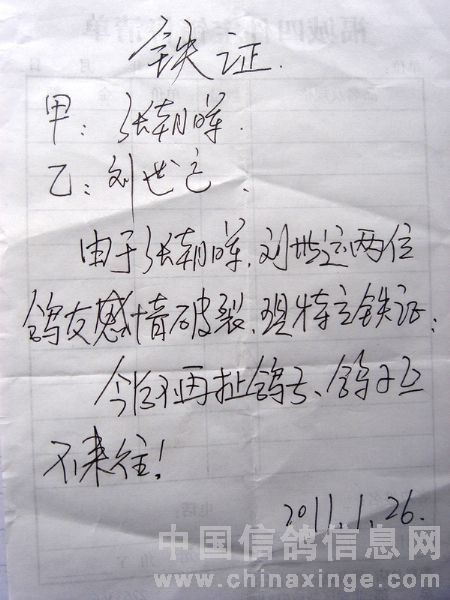 铁证.
甲：张朝晖.
乙：刘世定.
由于张朝晖，刘世定两位
鸽友感情破裂，现特立铁证：
今后不再扯鸽子、鸽子互
不来往！
2011.1.26.
中国信鸽信息网
www.chinaxinge.com